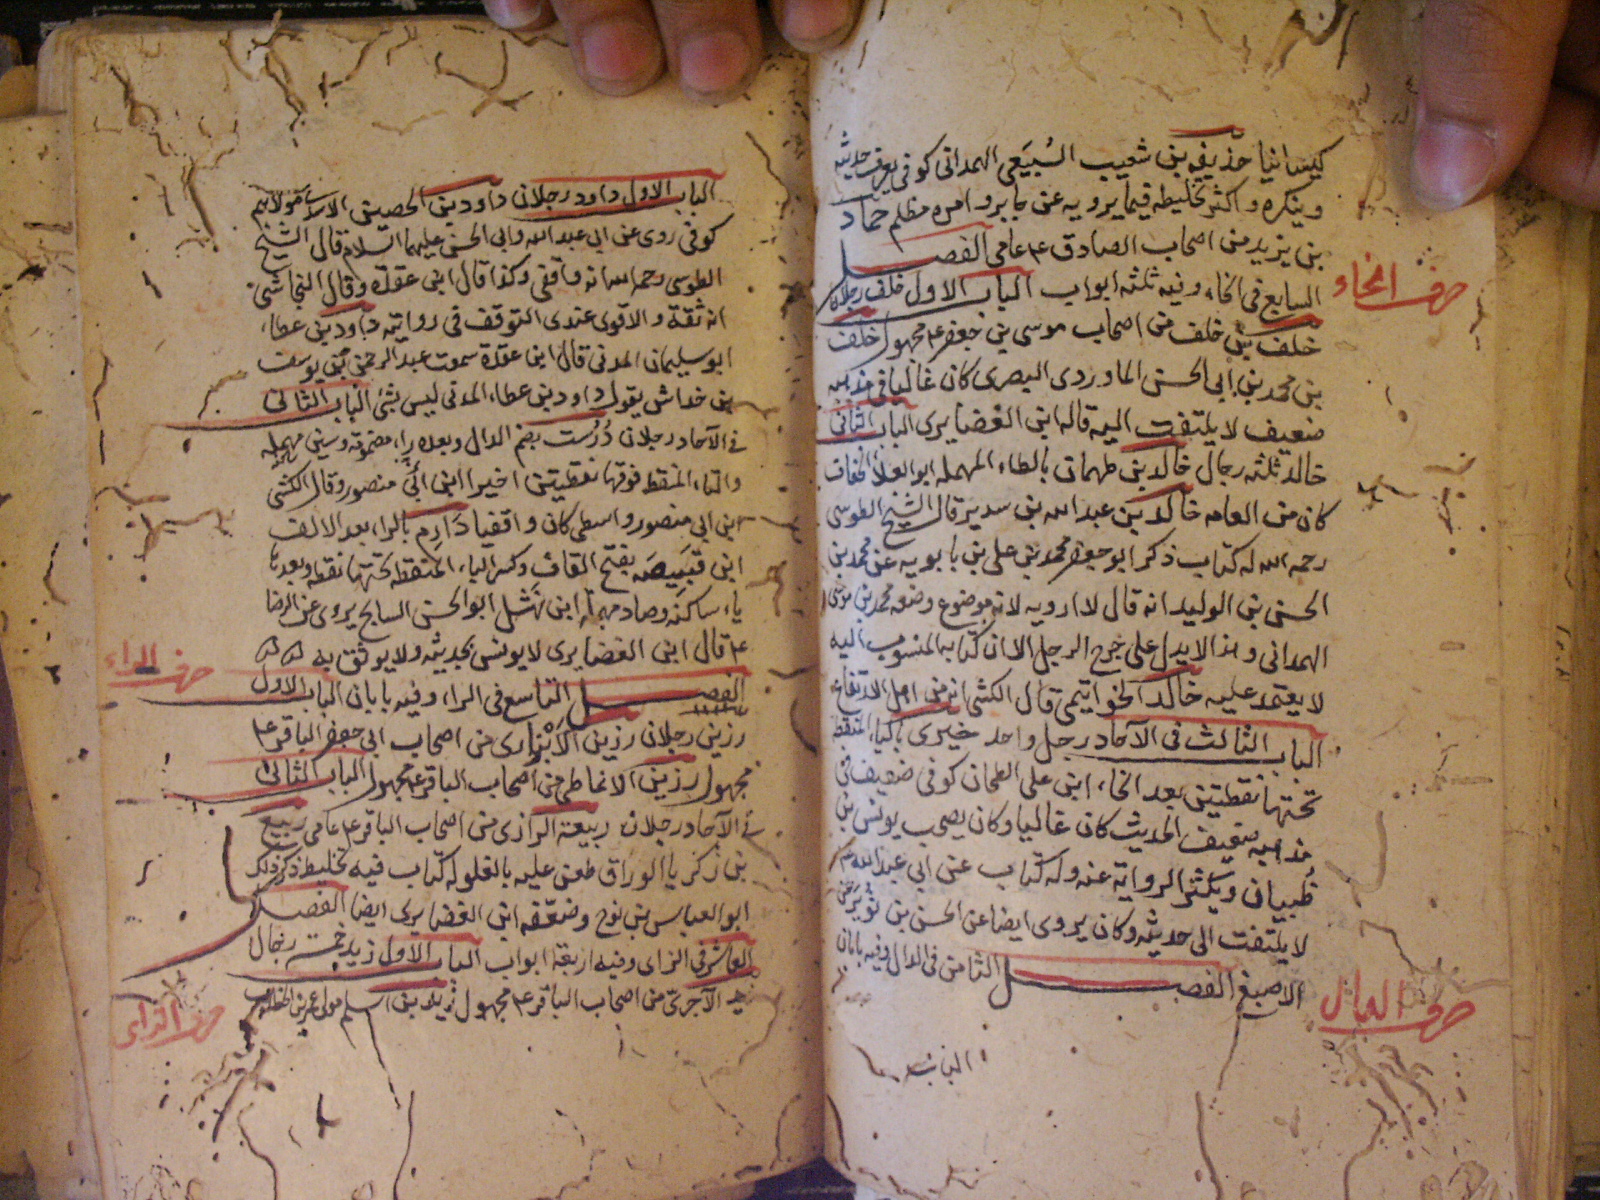 كيسانيا حذيفه بن شعيب السُبَيعي الهمداني كوفي يعرف حديثه
وينكره واكثر تخليطه فيما يرويه عن جابر وامره مظلم حماد
بن يزيد من اصحاب الصادق ع عامي الفصل
السابع في الخاء وفيه ثلثه ابواب الباب الاول خلف رجلان
حرف الخاء
خلف بن خلف من اصحاب موسى بن جعفر ع مجهول خلف
بن محمد بن ابي الحسن الماوردي البصري كان غاليا في مذهبه
ضعيف لا يلتفت اليه قاله ابن الغضايري الباب الثاني
خالد ثلثه رجال خالد بن طهمان بالطاء المهمله ابو العلأ الخفاف
كان من العامه خالد بن عبد الله بن سدير قال الشيخ الطوسي
رحمه الله له كتاب ذكر ابو جعفر محمد بن علي بن بابويه عن محمد بن
الحسن بن الوليد انه قال لا ارويه لانه موضوع وضعه محمد بن موسى
الهمداني وهذا لا يدل على جرح الرجل الا ان كتابه المنسوب اليه
لا يعتمد عليه خالد الخواتيمي قال الكشي انه من اهل الارتفاع
الباب الثالث في الآحاد رجل واحد خيبري بالياء المنقطه
تحتها نقطتين بعد الخاء ابن علي الطحان كوفي ضعيف في
مذهبه ضعيف الحديث كان غاليا وكان يصحب يونس بن
ظُبيان ويكثر الرواية عنه وله كتاب عن ابي عبد الله ع
لا يلتفت الى حديثه وكان يروى ايضا عن الحسن بن ثوير عن
الاصبغ الفصل الثامن في الدال وفيه بابان
حرف الدال
الباب
الباب الاول داود رجلان داود بن الحصين الاسدى مولاهم
كوفي روى عن ابي عبد الله وابي الحسن عليهما السلام قال الشيخ
الطوسي رحمه الله انه واقفي وكذا قال ابن عقدة وقال النجاشي
انه ثقة والاقوى عندي التوقف في روايته داود بن عطاء
ابو سليمان المدني قال ابن عقدة سمعت عبد الرحمن بن يوسف
بن خداش يقول داود بن عطاء المدني ليس بشئ الباب الثاني
في الآحاد رجلان دُرُست بضم الدال وبعده راء مضمومة وسين مهمله
والتاء المنقطه فوقها نقطتين اخيرا ابن ابي منصور وقال الكشي
ابن ابي منصور واسطي كان واقفيا دَارِم بالراء بعد الالف
ابن قَبِيصَه بفتح القاف وكسر الباء المنقطه تحتها نقطه وبعدها
ياء ساكنه وصاد مهمله ابن نَهْشَل ابو الحسن السايح يروى عن الرضا
ع قال ابن الغضايري لا يونس بحديثه ولا يوثق به
حرف الراء
الفصل التاسع في الراء وفيه بابان الباب الاول
رزين رجلان رزين الأَبْزاري من اصحاب ابي جعفر الباقر ع
مجهول رزين الانماطي من اصحاب الباقر ع مجهول الباب الثاني
في الآحاد رجلان ربيعة الرازى من اصحاب الباقر ع عامي ربيع
بن زكريا الوراق طعن عليه بالغلو له كتاب فيه تخليط ذكر ذلك
ابو العباس بن نوح وضعّفه ابن الغضايري ايضا الفصل
العاشر في الزاى وفيه اربعة ابواب الباب الاول زيد خمسة رجال
زيد الآجرى من اصحاب الباقر ع مجهول زيد بن اسلم مولى عمر بن الخطاب
حرف الزاى